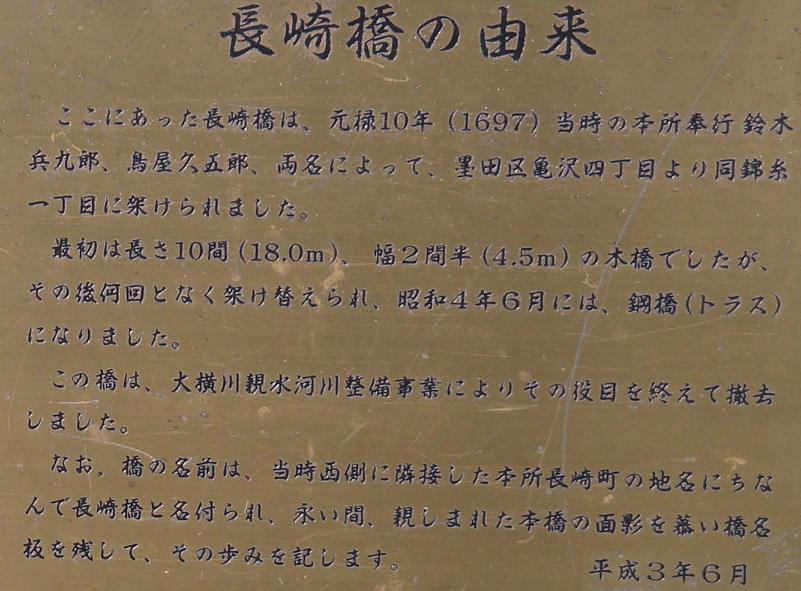 長崎橋の由来
ここにあった長崎橋は、元禄10年（1697）当時の本所奉行鈴木
兵九郎、鳥屋久五郎、両名によって、墨田区亀沢四丁目より同錦糸
一丁目に架けられました。
最初は長さ10間（18.0m）、幅２間半（4.5m）の木橋でしたが、
その後何回となく架け替えられ、昭和４年６月には、鋼橋（トラス）
になりました。
この橋は、大横川親水河川整備事業によりその役目を終えて撤去
しました。
なお、橋の名前は、当時西側に隣接した本所長崎町の地名にちな
んで長崎橋と名付られ、永い間、親しまれた本橋の面影を慕い橋名
板を残して、その歩みを記します。
平成３年６月